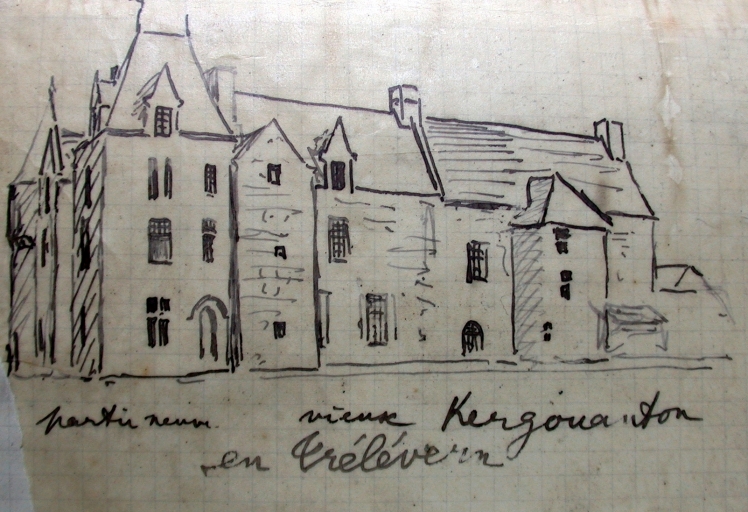 partie neuve. vieux Kergouanton
en Trélévern